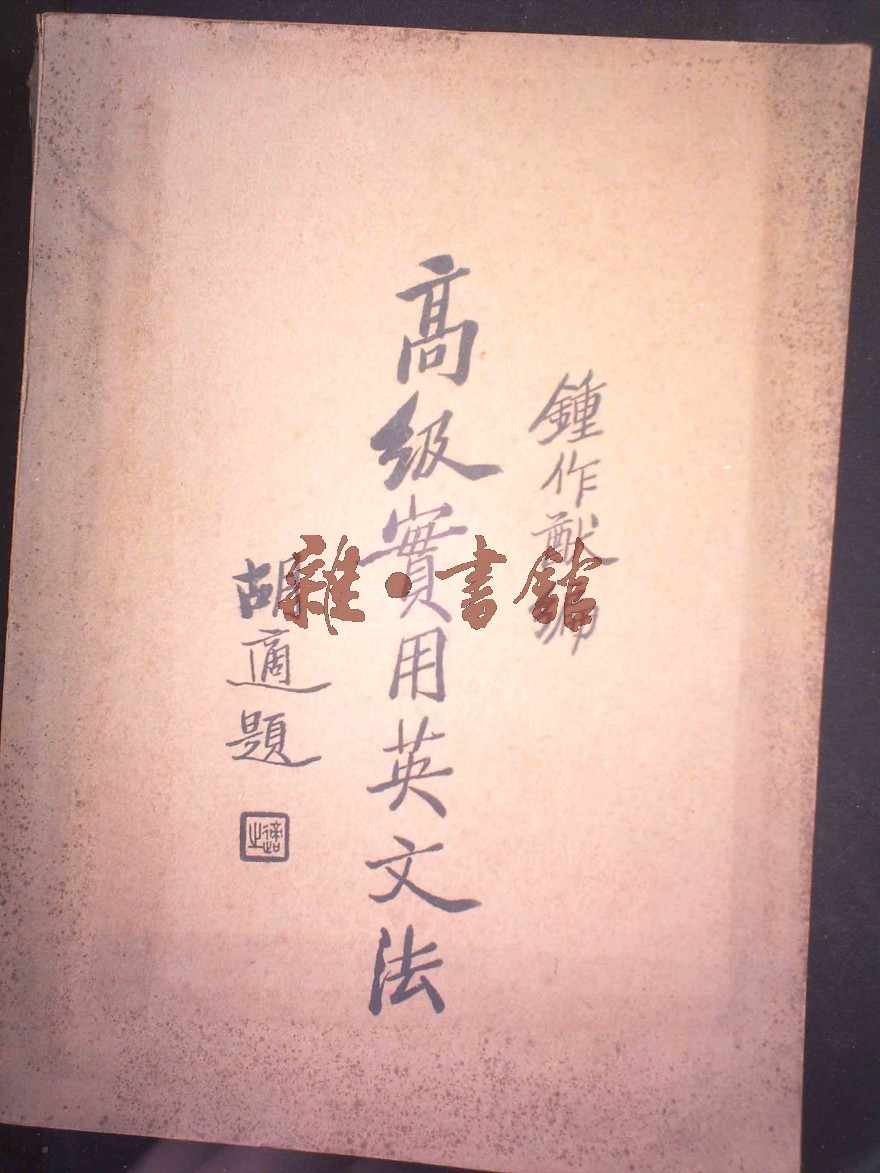 鍾作猷編
高級實用英文法
胡適題
適之
雜·書館